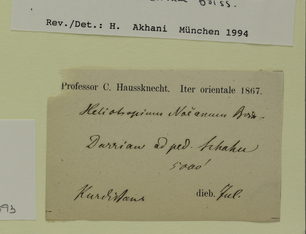 Boiss.
Rev./Det.: H. Akhani München 1994
Professor C. Haussknecht. Iter orientale 1867.
Heliotropium Noëanum Boiss
Darrian ad ped. Schahu
5000'
Kurdistan dieb. Jul.